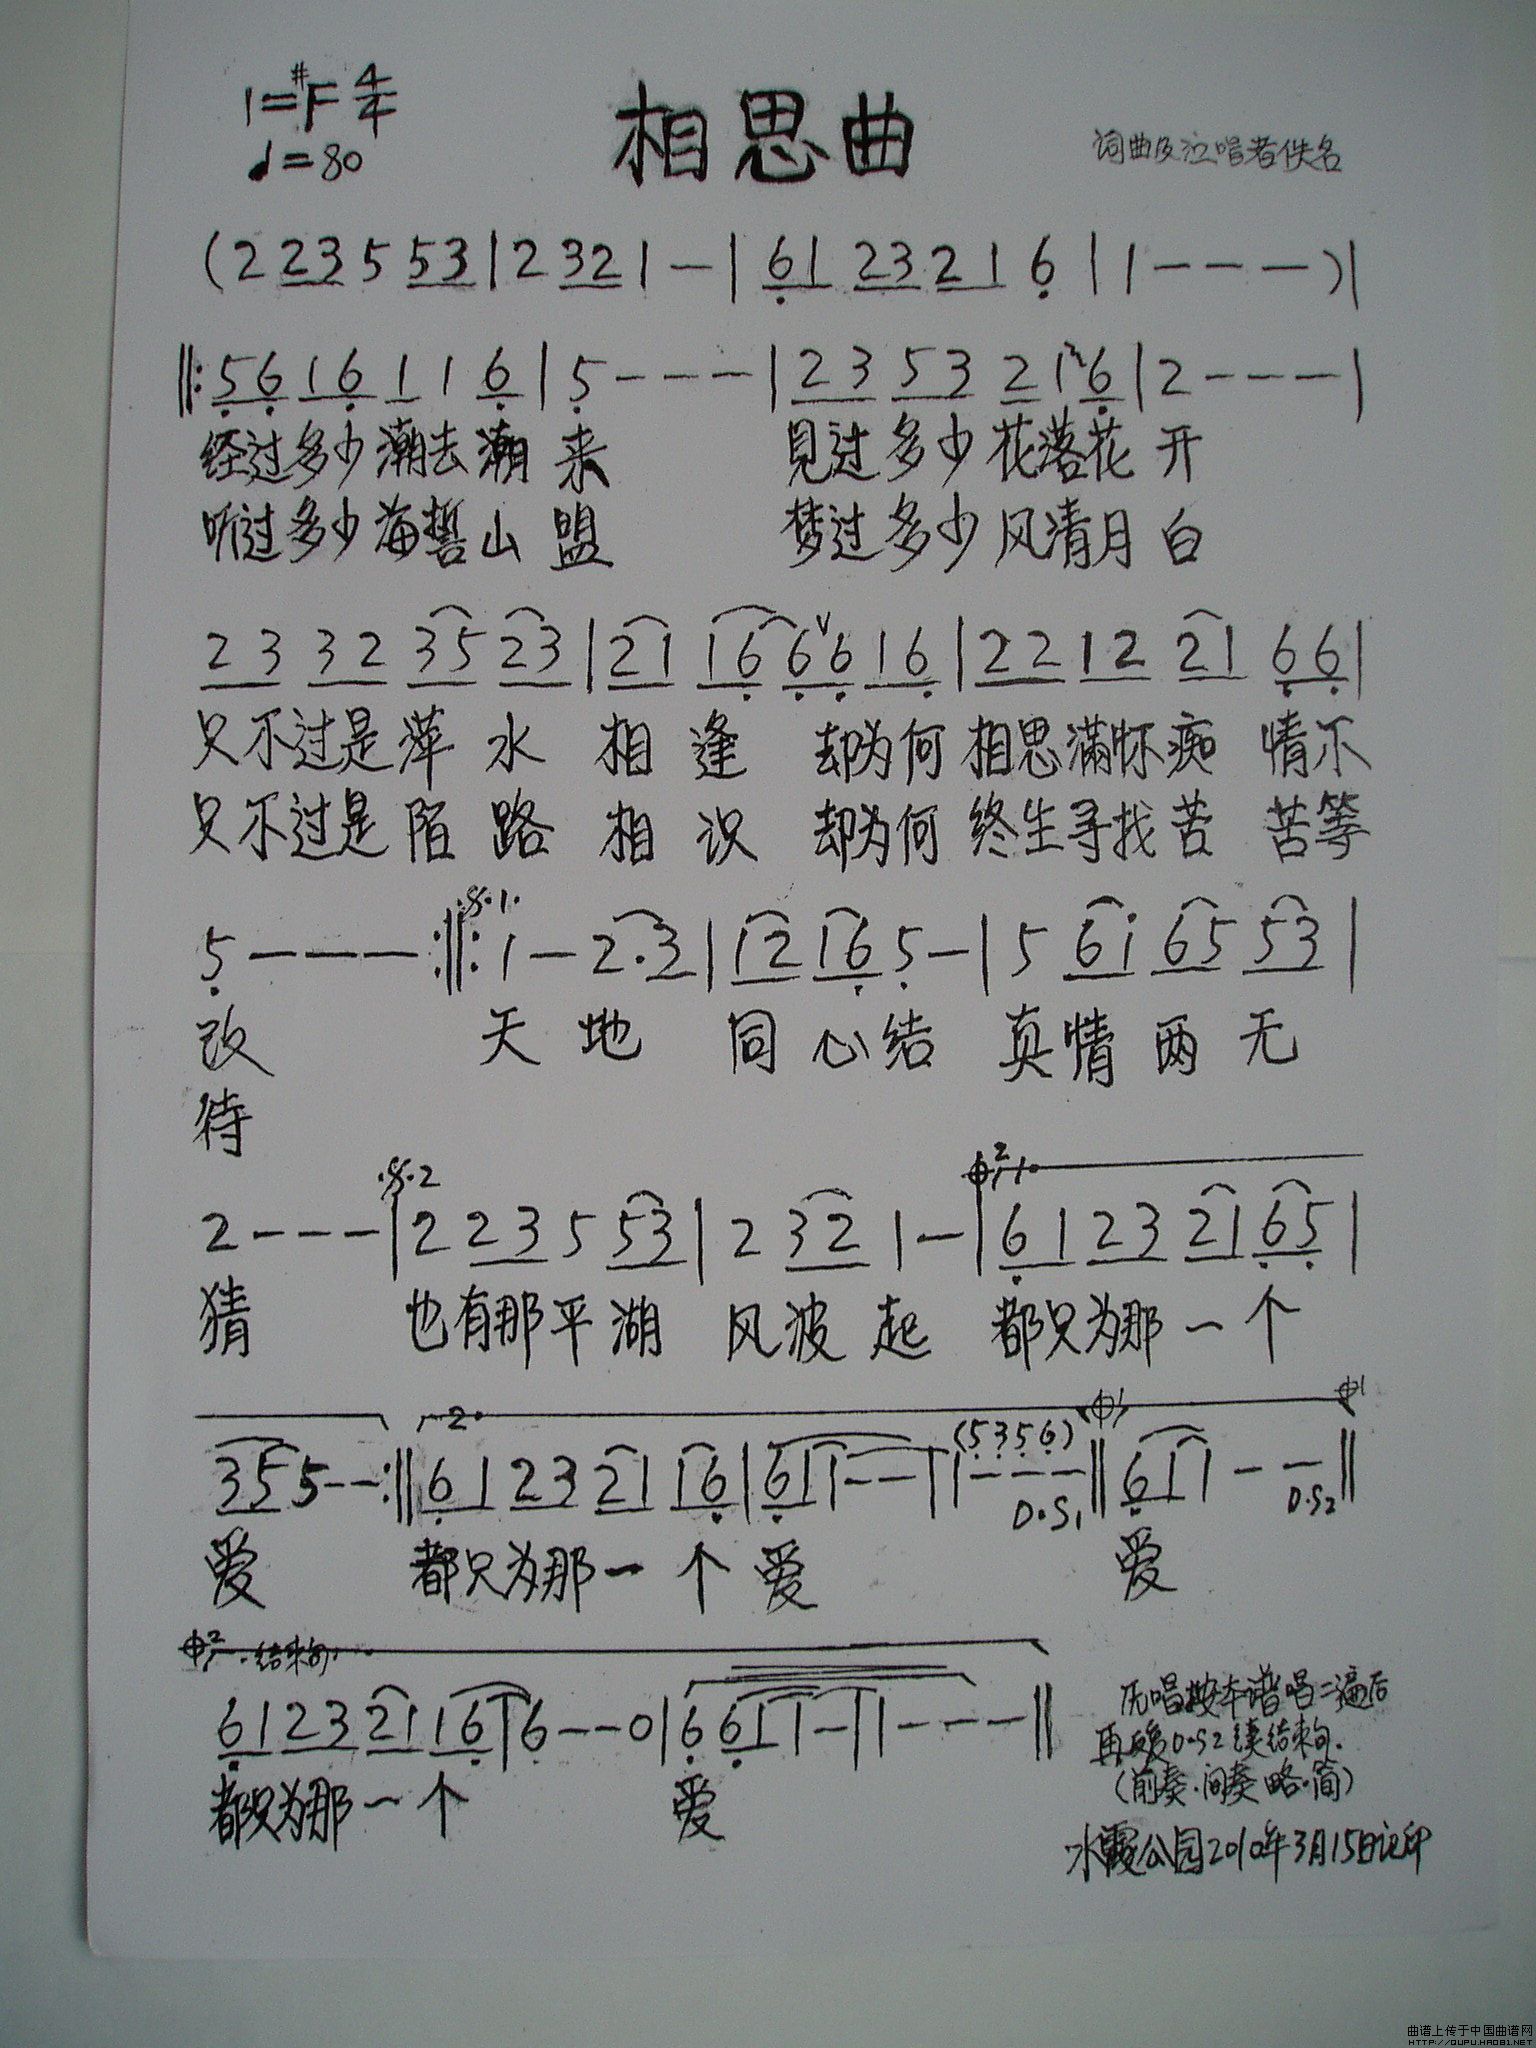 1=#F 4/4
♩=80
相思曲
词曲及泣唱者佚名
(2 23 5 53|2 32 1 —|61 23 21 6|1 — — —)|
‖:56 16 1 1 6|5 — — —|23 53 2 1 6|2 — — —|
经过多少潮去潮来 见过多少花落花开
听过多少海誓山盟 梦过多少风清月白
23 32 35 23|21 16 6ⱽ6 16|22 12 21 66|
只不过是萍水相逢 却为何相思满怀痴情不
只不过是陌路相识 却为何终生寻找苦苦等
𝄋·1·
5 — — — :‖: 1 — 2·3|12 16 5 —|5 61 65 53|
改 天地同心结 真情两无
待
𝄋·2 𝄌2 1.
2 — — —|2 23 5 53|2 32 1 —|61 23 21 65|
猜 也有那平湖风波起 都只为那一个
2. (5356) 𝄌1 𝄌1
35 5 — — :‖61 23 21 16|61 1 — —|1 — — —‖61 1 — —‖
D.S1 D.S2
爱 都只为那一个爱 爱
𝄌2 ·结束句·
61 23 21 16|6 — — 0|6 61 1 —|1 — — —‖
都只为那一个 爱
原唱按本谱唱二遍后
再反复D.S2接结束句.
(前奏.间奏略.简)
冰霞公园2010年3月15日记印
曲谱上传于中国曲谱网
HTTP://QUPU.HAO81.NET